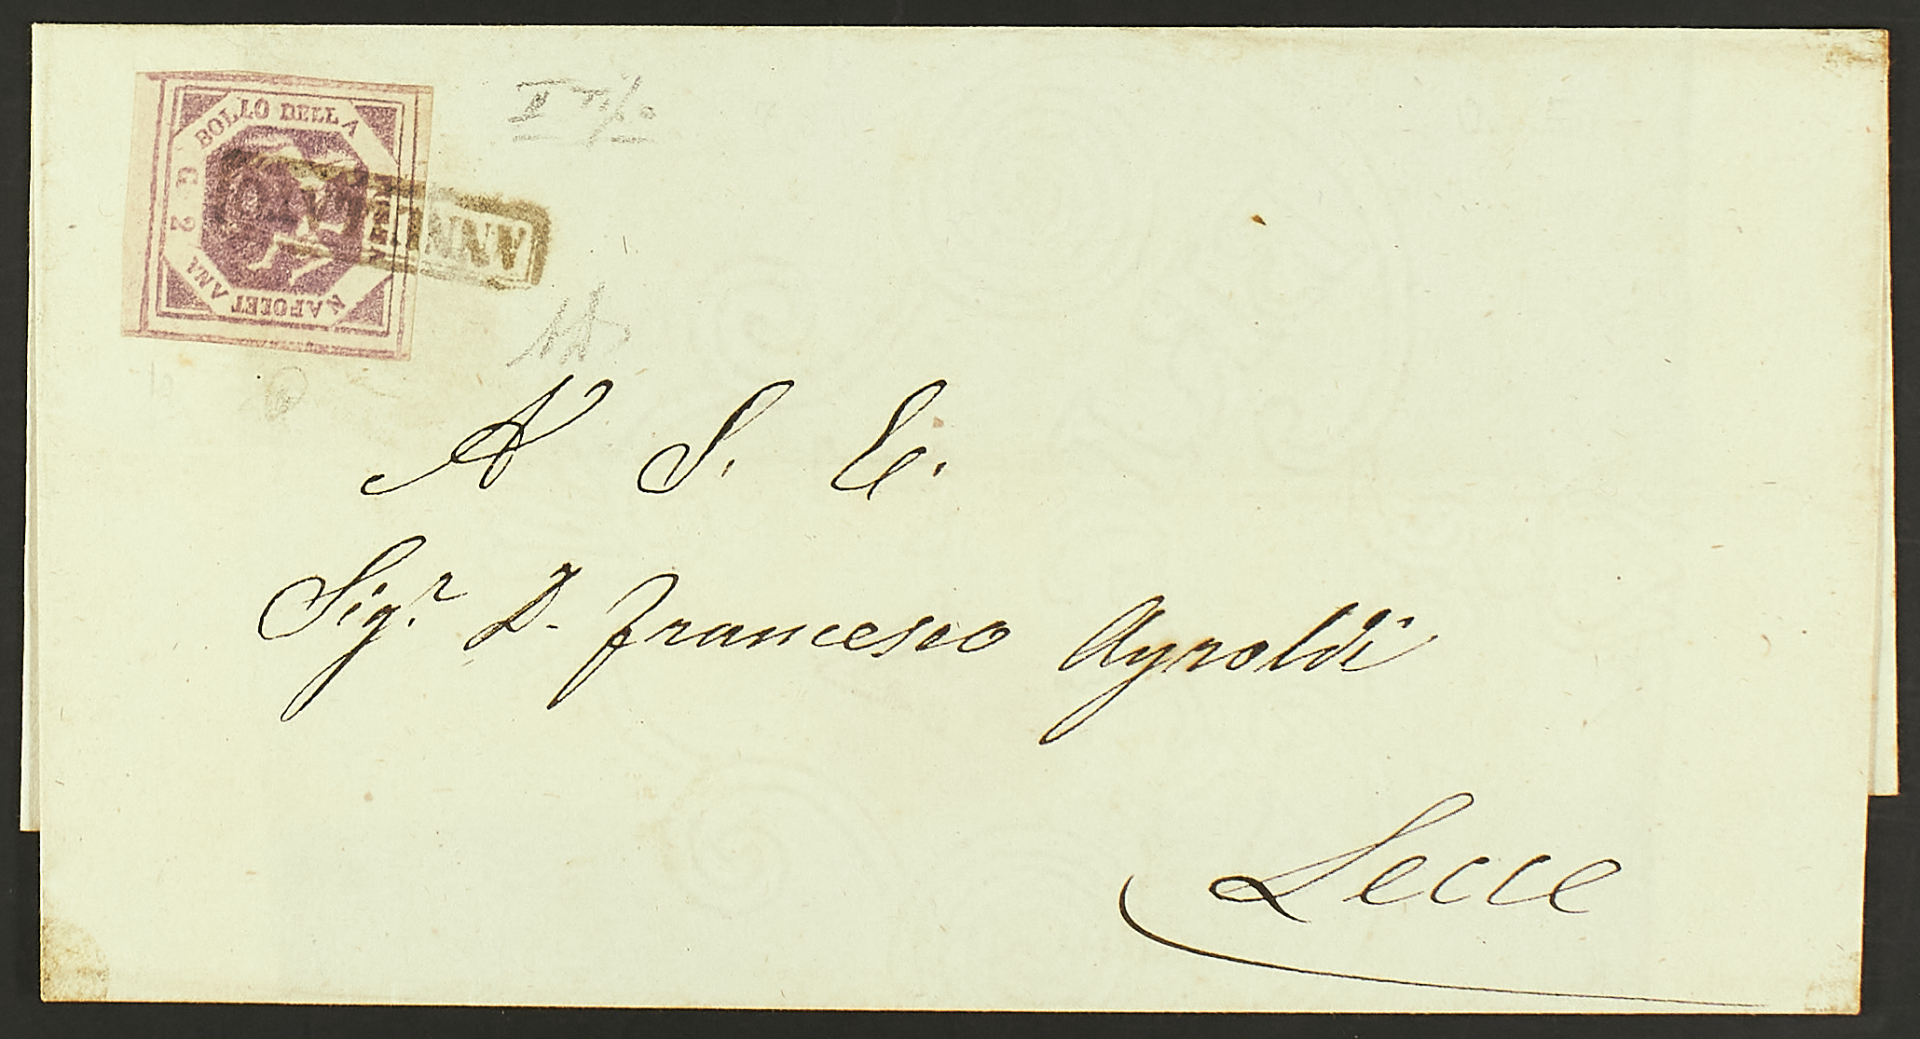 BOLLO DELLA
POSTA
NAPOLETANA
G 2
ANNULLATO
A S. E.
Sig.r D. Francesco Ayroldi
Lecce